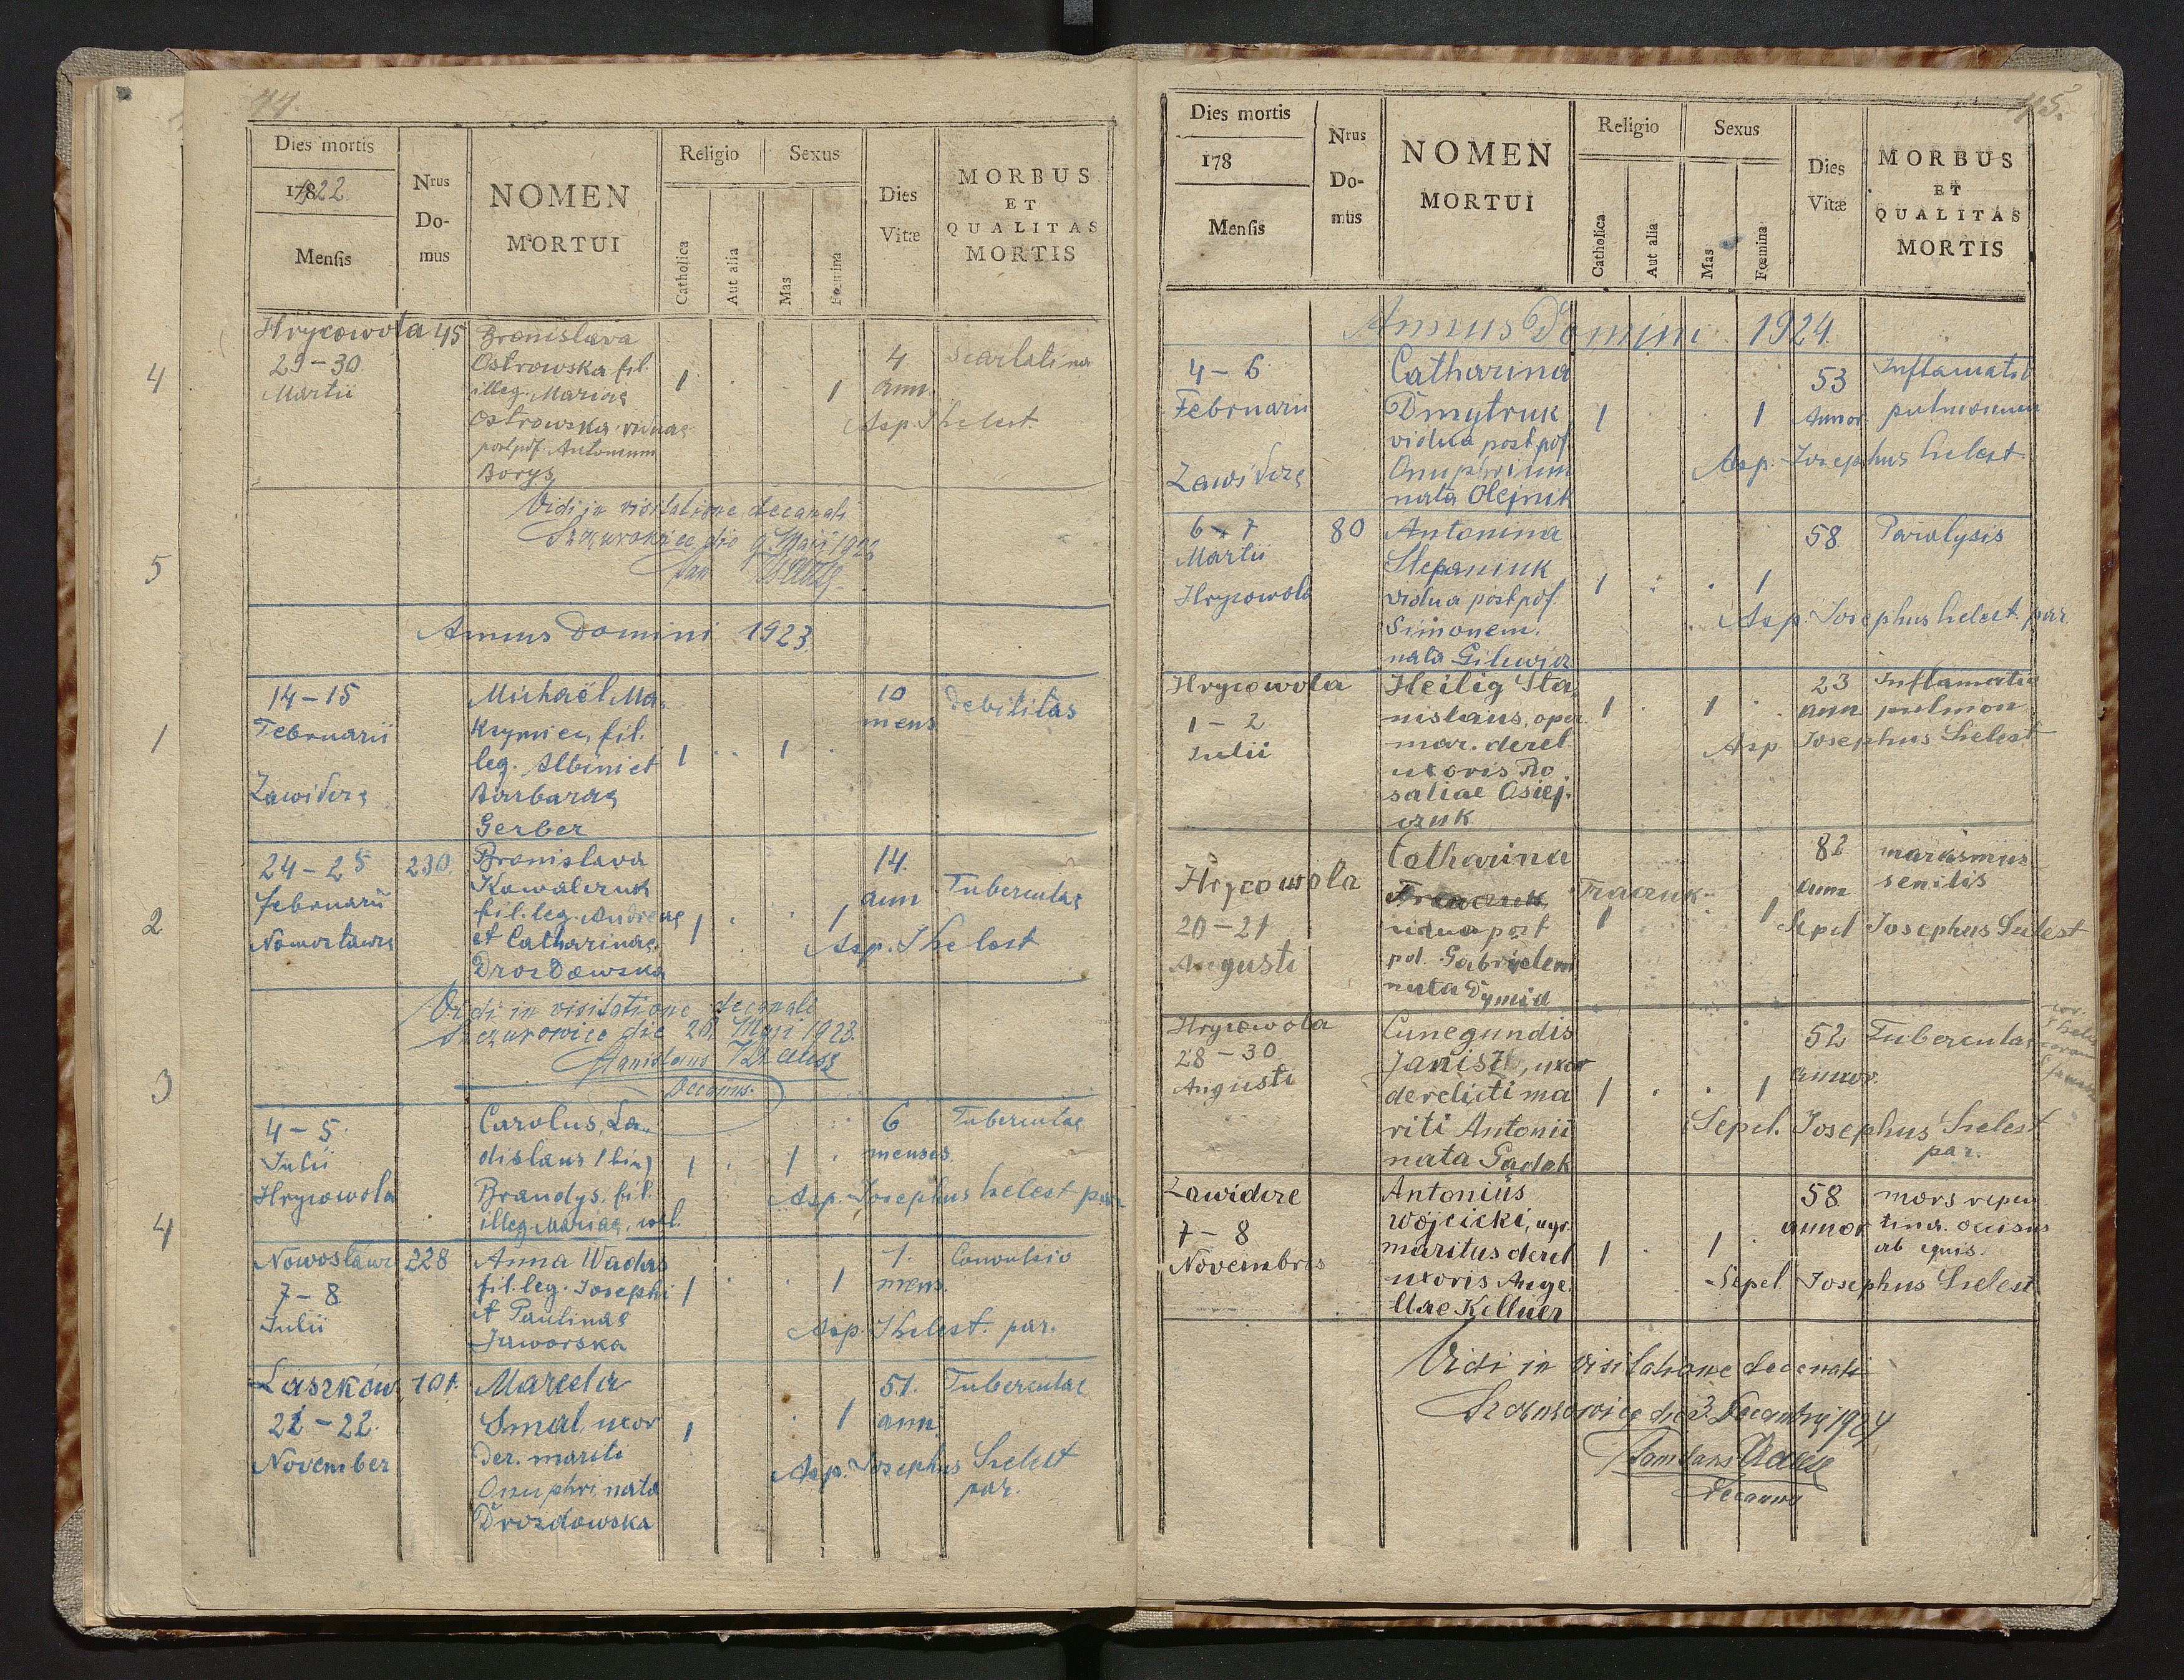 44.
Dies mortis
178
922.
Mensis
Nrus
Do-
mus
NOMEN
MORTUI
Religio
Catholica
Aut alia
Sexus
Mas
Fœmina
Dies
Vitæ
MORBUS
ET
QUALITAS
MORTIS
4
5
1
2
3
4
Hrycowola 45 Bronislava 4 Scarlatina
29-30 Ostrowska fil. ann.
Martii illeg. Mariae 1 . . 1
Ostrowska viduae Asp. J Szelest.
post pdf. Antonium
Borys
Vidi in visitatione decanali
Szczurowice die 9. Maji 1922
Annus Domini 1923
14-15 Michaël Ma- 10 debilitas
Februarii krymicz, fil. mens
leg. Albini et 1 . . 1 .
Zawidcze Barbarae
Gerber
24-25 230. Bronislava 14. Tuberculae
Februarii Kowalczuk ann
fil. leg. Andreae 1 . . 1
Nowostawce et Catharinae Asp. J Szelest
Drozdowska
Vidi in visitatione decanali
Szczurowice die 28. Maji 1923.
Stanislaus
Decanus.
4-5. Carolus, La- 6 Tuberculae
Julii dislaus (bin) 1 . 1 . menses.
Hrycowola Brandys. fil. Asp. Josephus Szelest par.
illeg Mariae,
Nowostawce 228 Anna Wadas 1. Convulsio
7-8 fil. leg. Josephi 1 . . 1 mens.
Julii et Paulinae Asp. J Szelest. par.
Jaworska
Laszków 101. Marcela 51. Tuberculae
22-22. Smal, uxor 1 . 1 ann.
November der. mariti Asp. Josephus Szelest
Onuphri nata par.
Drozdowska
45.
Dies mortis
178
Mensis
Nrus
Do-
mus
NOMEN
MORTUI
Religio
Catholica
Aut alia
Sexus
Mas
Fœmina
Dies
Vitæ
MORBUS
ET
QUALITAS
MORTIS
Annus Domini 1924.
4-6 Catharina 53 Inflamatio
Februarii Dmytruk 1 1 Annor. pulmonum
vidua post pdf. Asp. Josephus Szelest
Zawidcze Onuphrium
nata Olejnik
6-7 80 Antonina 58 Paralysis
Martii Stepaniuk
Hrycowola vidua post pdf. 1 . . 1
Simonem. Asp. Josephus Szelest par.
nata Gilewicz
Hrycowola Heilig Sta- 23 Inflamatio
1-2 nislaus, oper. 1 . 1 . ann pulmon
Julii mar. derel. Asp Josephus Szelest
uxoris Ro-
saliae Osiej-
czuk
Catharina 82 marasmus
Hrycowola Traczuk ann senilis
20-21 vidua post 1 1 Sepel Josephus Szelest
Augusti pd. Gabrielem
nata Dymid
Hrycowola Cunegundis 52 Tuberculae
28-30 Janisz, uxor annor.
Augusti derelicti ma 1 . . 1
riti Antonii Sepel. Josephus Szelest
nata Gadek par.
Zawidcze Antonius 58 mors repen
7-8 Wójcicki, agr. annor tina. occisus
Novembris maritus derel 1 . 1 ab equis.
uxoris Ange- Sepel Josephus Szelest
llae Kellner
Vidi in visitatione decanali
Szczurowice die 3. Decembris 1924
Decanus